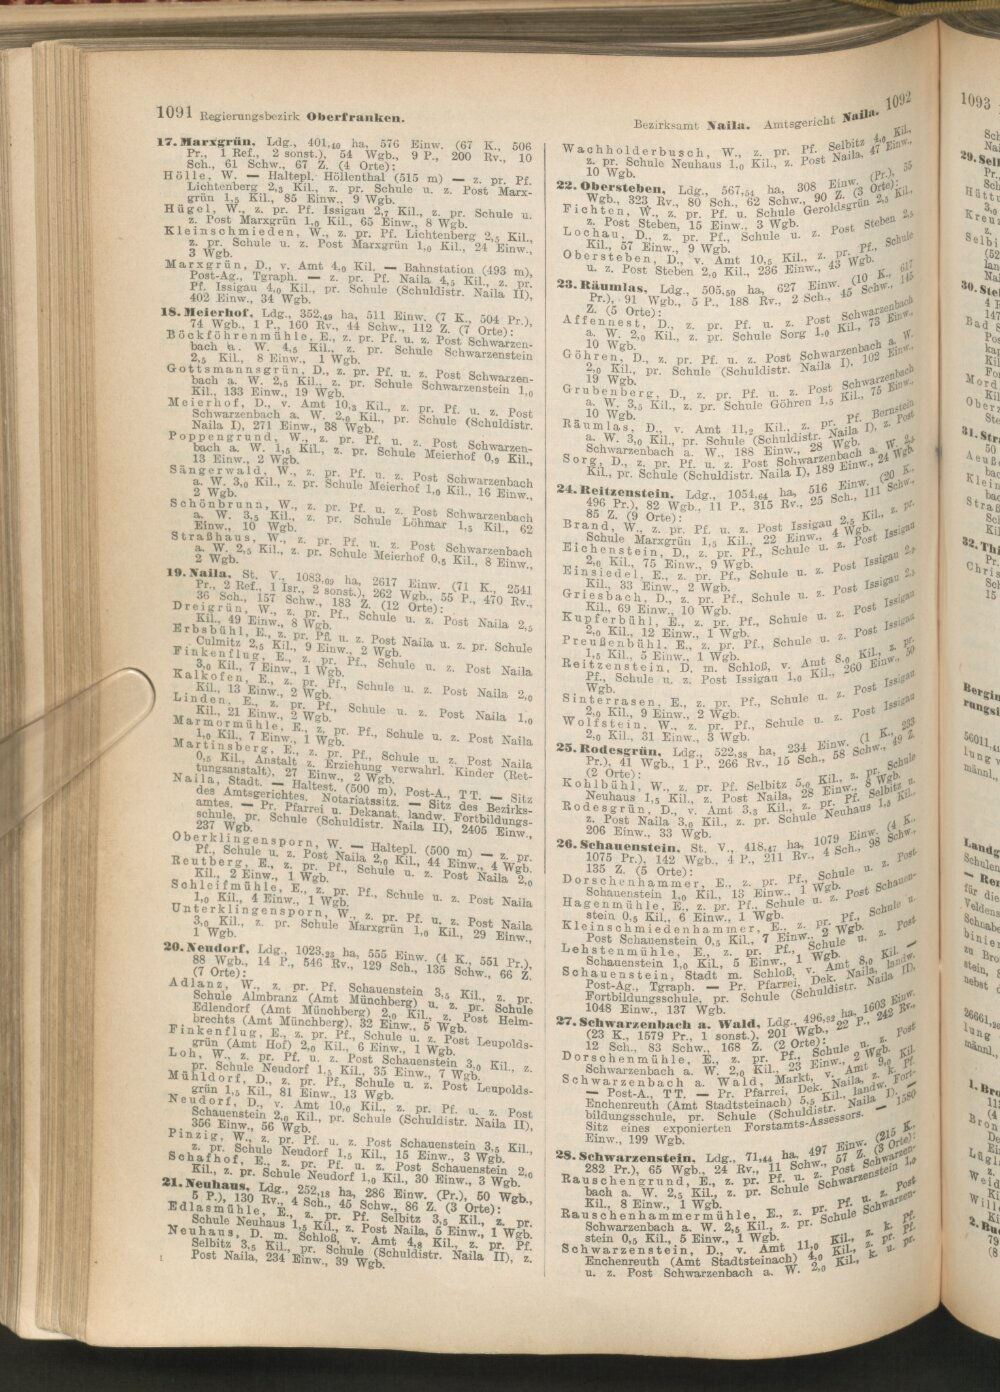 1091 Regierungsbezirk Oberfranken.
17. Marxgrün, Ldg., 401,40 ha, 576 Einw. (67 K., 506
Pr., 1 Ref., 2 sonst.), 54 Wgb., 9 P., 200 Rv., 10
Sch., 61 Schw., 67 Z. (4 Orte):
Hölle, W. — Haltepl. Höllenthal (515 m) — z. pr. Pf.
Lichtenberg 2,3 Kil., z. pr. Schule u. z. Post Marx-
grün 1,5 Kil., 85 Einw., 9 Wgb.
Hügel, W., z. pr. Pf. Issigau 2,7 Kil., z. pr. Schule u.
z. Post Marxgrün 1,0 Kil., 65 Einw., 8 Wgb.
Kleinschmieden, W., z. pr. Pf. Lichtenberg 2,5 Kil.,
z. pr. Schule u. z. Post Marxgrün 1,0 Kil., 24 Einw.,
3 Wgb.
Marxgrün, D., v. Amt 4,0 Kil. — Bahnstation (493 m),
Post-Ag., Tgraph. — z. pr. Pf. Naila 4,5 Kil., z. pr.
Pf. Issigau 4,0 Kil., pr. Schule (Schuldistr. Naila II),
402 Einw., 34 Wgb.
18. Meierhof, Ldg., 352,49 ha, 511 Einw. (7 K., 504 Pr.),
74 Wgb., 1 P., 160 Rv., 44 Schw., 112 Z. (7 Orte):
Böckföhrenmühle, E., z. pr. Pf. u. z. Post Schwarzen-
bach a. W. 4,5 Kil., z. pr. Schule Schwarzenstein
2,5 Kil., 8 Einw., 1 Wgb.
Gottsmannsgrün, D., z. pr. Pf. u. z. Post Schwarzen-
bach a. W. 2,5 Kil., z. pr. Schule Schwarzenstein 1,0
Kil., 133 Einw., 19 Wgb.
Meierhof, D., v. Amt 10,3 Kil., z. pr. Pf. u. z. Post
Schwarzenbach a. W. 2,0 Kil., pr. Schule (Schuldistr.
Naila I), 271 Einw., 38 Wgb.
Poppengrund, W., z. pr. Pf. u. z. Post Schwarzen-
bach a. W. 1,5 Kil., z. pr. Schule Meierhof 0,9 Kil.,
13 Einw., 2 Wgb.
Sängerwald, W., z. pr. Pf. u. z. Post Schwarzenbach
a. W. 3,0 Kil., z. pr. Schule Meierhof 1,0 Kil., 16 Einw.,
2 Wgb.
Schönbrunn, W., z. pr. Pf. u. z. Post Schwarzenbach
a. W. 3,5 Kil., z. pr. Schule Löhmar 1,5 Kil., 62
Einw., 10 Wgb.
Straßhaus, W., z. pr. Pf. u. z. Post Schwarzenbach
a. W. 2,5 Kil., z. pr. Schule Meierhof 0,5 Kil., 8 Einw.,
2 Wgb.
19. Naila, St. V., 1083,09 ha, 2617 Einw. (71 K., 2541
Pr., 2 Ref., 1 Isr., 2 sonst.), 262 Wgb., 55 P., 470 Rv.,
36 Sch., 157 Schw., 183 Z. (12 Orte):
Dreigrün, W., z. pr. Pf., Schule u. z. Post Naila 2,5
Kil., 49 Einw., 8 Wgb.
Erbsbühl, E., z. pr. Pf. u. z. Post Naila u. z. pr. Schule
Culmitz 2,5 Kil., 9 Einw., 2 Wgb.
Finkenflug, E., z. pr. Pf., Schule u. z. Post Naila
3,0 Kil., 7 Einw., 1 Wgb.
Kalkofen, E., z. pr. Pf., Schule u. z. Post Naila 2,0
Kil., 13 Einw., 2 Wgb.
Linden, E., z. pr. Pf., Schule u. z. Post Naila 1,0
Kil., 21 Einw., 2 Wgb.
Marmormühle, E., z. pr. Pf., Schule u. z. Post Naila
1,0 Kil., 7 Einw., 1 Wgb.
Martinsberg, E., z. pr. Pf., Schule u. z. Post Naila
0,5 Kil., Anstalt z. Erziehung verwahrl. Kinder (Ret-
tungsanstalt), 27 Einw., 2 Wgb.
Naila, Stadt. — Haltest. (500 m), Post-A., TT. — Sitz
des Amtsgerichtes, Notariatssitz. — Sitz des Bezirks-
amtes. — Pr. Pfarrei u. Dekanat, landw. Fortbildungs-
schule, pr. Schule (Schuldistr. Naila II), 2405 Einw.,
237 Wgb.
Oberklingensporn, W. — Haltepl. (500 m) — z. pr.
Pf., Schule u. z. Post Naila 2,0 Kil., 44 Einw., 4 Wgb.
Reutberg, E., z. pr. Pf., Schule u. z. Post Naila 2,0
Kil., 2 Einw., 1 Wgb.
Schleifmühle, E., z. pr. Pf., Schule u. z. Post Naila
1,0 Kil., 4 Einw., 1 Wgb.
Unterklingensporn, W., z. pr. Pf. u. z. Post Naila
3,0 Kil., z. pr. Schule Marxgrün 1,0 Kil., 29 Einw.,
1 Wgb.
20. Neudorf, Ldg., 1023,23 ha, 555 Einw. (4 K., 551 Pr.),
88 Wgb., 14 P., 546 Rv., 129 Sch., 135 Schw., 66 Z.
(7 Orte):
Adlanz, W., z. pr. Pf. Schauenstein 3,5 Kil., z. pr.
Schule Almbranz (Amt Münchberg) u. z. pr. Schule
Edlendorf (Amt Münchberg) 2,0 Kil., z. Post Helm-
brechts (Amt Münchberg), 32 Einw., 5 Wgb.
Finkenflug, E., z. pr. Pf., Schule u. z. Post Leupolds-
grün (Amt Hof) 2,0 Kil., 6 Einw., 1 Wgb.
Loh, W., z. pr. Pf. u. z. Post Schauenstein 3,0 Kil., z.
pr. Schule Neudorf 1,5 Kil., 35 Einw., 7 Wgb.
Mühldorf, D., z. pr. Pf., Schule u. z. Post Leupolds-
grün 1,5 Kil., 81 Einw., 13 Wgb.
Neudorf, D., v. Amt 10,0 Kil., z. pr. Pf. u. z. Post
Schauenstein 2,0 Kil., pr. Schule (Schuldistr. Naila II),
356 Einw., 56 Wgb.
Pinzig, W., z. pr. Pf. u. z. Post Schauenstein 3,5 Kil.,
z. pr. Schule Neudorf 1,5 Kil., 15 Einw., 3 Wgb.
Schafhof, E., z. pr. Pf. u. z. Post Schauenstein 2,0
Kil., z. pr. Schule Neudorf 1,0 Kil., 30 Einw., 3 Wgb.
21. Neuhaus, Ldg., 252,18 ha, 286 Einw. (Pr.), 50 Wgb.,
5 P.), 130 Rv., 4 Sch., 45 Schw., 86 Z. (3 Orte):
Edlasmühle, E., z. pr. Pf. Selbitz 3,5 Kil., z. pr.
Schule Neuhaus 1,5 Kil., z. Post Naila, 5 Einw., 1 Wgb.
Neuhaus, D. m. Schloß, v. Amt 4,8 Kil., z. pr. Pf.
Selbitz 3,5 Kil., pr. Schule (Schuldistr. Naila II), z.
Post Naila, 234 Einw., 39 Wgb.
Bezirksamt Naila. Amtsgericht Naila. 1092
Wachholderbusch, W., z. pr. Pf. Selbitz 4,0 Kil.,
z. pr. Schule Neuhaus 1,0 Kil., z. Post Naila, 47 Einw.,
10 Wgb.
22. Obersteben, Ldg., 567,54 ha, 308 Einw. (Pr.), 55
Wgb., 323 Rv., 80 Sch., 62 Schw., 90 Z. (3 Orte):
Fichten, W., z. pr. Pf. u. Schule Geroldsgrün 2,5 Kil.,
z. Post Steben, 15 Einw., 3 Wgb.
Lochau, D., z. pr. Pf., Schule u. z. Post Steben 2,5
Kil., 57 Einw., 9 Wgb.
Obersteben, D., v. Amt 10,5 Kil., z. pr. Pf., Schule
u. z. Post Steben 2,0 Kil., 236 Einw., 43 Wgb.
23. Räumlas, Ldg., 505,59 ha, 627 Einw. (10 K., 617
Pr.), 91 Wgb., 5 P., 188 Rv., 2 Sch., 45 Schw., 145
Z. (5 Orte):
Affennest, D., z. pr. Pf. u. z. Post Schwarzenbach
a. W. 2,0 Kil., z. pr. Schule Sorg 1,0 Kil., 73 Einw.,
10 Wgb.
Göhren, D., z. pr. Pf. u. z. Post Schwarzenbach a. W.
2,0 Kil., pr. Schule (Schuldistr. Naila I), 102 Einw.,
19 Wgb.
Grubenberg, D., z. pr. Pf. u. z. Post Schwarzenbach
a. W. 3,5 Kil., z. pr. Schule Göhren 1,5 Kil., 75 Einw.,
10 Wgb.
Räumlas, D., v. Amt 11,2 Kil., z. pr. Pf. Bernstein
a. W. 3,0 Kil., pr. Schule (Schuldistr. Naila I), z. Post
Schwarzenbach a. W., 188 Einw., 28 Wgb.
Sorg, D., z. pr. Pf. u. z. Post Schwarzenbach a. W. 2,5
Kil., pr. Schule (Schuldistr. Naila I), 189 Einw., 24 Wgb.
24. Reitzenstein, Ldg., 1054,64 ha, 516 Einw. (20 K.,
496 Pr.), 82 Wgb., 11 P., 315 Rv., 25 Sch., 111 Schw.,
85 Z. (9 Orte):
Brand, W., z. pr. Pf. u. z. Post Issigau 2,5 Kil., z. pr.
Schule Marxgrün 1,5 Kil., 22 Einw., 4 Wgb.
Eichenstein, D., z. pr. Pf., Schule u. z. Post Issigau
2,0 Kil., 75 Einw., 9 Wgb.
Einsiedel, E., z. pr. Pf., Schule u. z. Post Issigau 2,5
Kil., 33 Einw., 2 Wgb.
Griesbach, D., z. pr. Pf., Schule u. z. Post Issigau 2,5
Kil., 69 Einw., 10 Wgb.
Kupferbühl, E., z. pr. Pf., Schule u. z. Post Issigau
2,0 Kil., 12 Einw., 1 Wgb.
Preußenbühl, E., z. pr. Pf., Schule u. z. Post Issigau
1,5 Kil., 5 Einw., 1 Wgb.
Reitzenstein, D. m. Schloß, v. Amt 8,0 Kil., z. pr.
Pf., Schule u. z. Post Issigau 1,0 Kil., 260 Einw., 50
Wgb.
Sinterrasen, E., z. pr. Pf., Schule u. z. Post Issigau
2,0 Kil., 9 Einw., 2 Wgb.
Wolfstein, W., z. pr. Pf., Schule u. z. Post Issigau
2,0 Kil., 31 Einw., 3 Wgb.
25. Rodesgrün, Ldg., 522,38 ha, 234 Einw. (1 K., 233
Pr.), 41 Wgb., 1 P., 266 Rv., 15 Sch., 58 Schw., 49 Z.
(2 Orte):
Kohlbühl, W., z. pr. Pf. Selbitz 5,0 Kil., z. pr. Schule
Neuhaus 1,5 Kil., z. Post Naila, 28 Einw., 8 Wgb.
Rodesgrün, D., v. Amt 3,3 Kil., z. pr. Pf. Selbitz u.
z. Post Naila 3,0 Kil., z. pr. Schule Neuhaus 1,5 Kil.,
206 Einw., 33 Wgb.
26. Schauenstein, St. V., 418,47 ha, 1079 Einw. (4 K.,
1075 Pr.), 142 Wgb., 4 P., 211 Rv., 4 Sch., 98 Schw.,
135 Z. (5 Orte):
Dorschenhammer, E., z. pr. Pf., Schule u. z. Post
Schauenstein 1,0 Kil., 13 Einw., 1 Wgb.
Hagenmühle, E., z. pr. Pf., Schule u. z. Post Schauen-
stein 0,5 Kil., 6 Einw., 1 Wgb.
Kleinschmiedenhammer, E., z. pr. Pf., Schule u.
z. Post Schauenstein 0,5 Kil., 7 Einw., 2 Wgb.
Lehstenmühle, E., z. pr. Pf., Schule u. z. Post
Schauenstein 1,0 Kil., 5 Einw., 1 Wgb.
Schauenstein, Stadt m. Schloß, v. Amt 8,0 Kil. —
Post-Ag., Tgraph. — Pr. Pfarrei, Dek. Naila, landw.
Fortbildungsschule, pr. Schule (Schuldistr. Naila II),
1048 Einw., 137 Wgb.
27. Schwarzenbach a. Wald, Ldg., 496,92 ha, 1603 Einw.
(23 K., 1579 Pr., 1 sonst.), 201 Wgb., 22 P., 242 Rv.,
12 Sch., 83 Schw., 168 Z. (2 Orte):
Dorschenmühle, E., z. pr. Pf., Schule u. z. Post
Schwarzenbach a. W. 2,0 Kil., 23 Einw., 2 Wgb.
Schwarzenbach a. Wald, Markt, v. Amt 9,0 Kil.
— Post-A., TT. — Pr. Pfarrei, Dek. Naila, z. k. Pf.
Enchenreuth (Amt Stadtsteinach) 5,5 Kil., landw. Fort-
bildungsschule, pr. Schule (Schuldistr. Naila I), —
Sitz eines exponierten Forstamts-Assessors. — 1580
Einw., 199 Wgb.
28. Schwarzenstein, Ldg., 71,44 ha, 497 Einw. (215 K.,
282 Pr.), 65 Wgb., 24 Rv., 11 Schw., 57 Z. (3 Orte):
Rauschengrund, E., z. pr. Pf. u. z. Post Schwarzen-
bach a. W. 2,5 Kil., z. pr. Schule Schwarzenstein 1,0
Kil., 8 Einw., 1 Wgb.
Rauschenhammermühle, E., z. pr. Pf. u. z. Post
Schwarzenbach a. W. 2,5 Kil., z. pr. Schule Schwarzen-
stein 0,5 Kil., 5 Einw., 1 Wgb.
Schwarzenstein, D., v. Amt 11,0 Kil., z. k. Pf.
Enchenreuth (Amt Stadtsteinach) 4,0 Kil., z. pr. Pf.
u. z. Post Schwarzenbach a. W. 2,0 Kil., k. u. pr.
1093